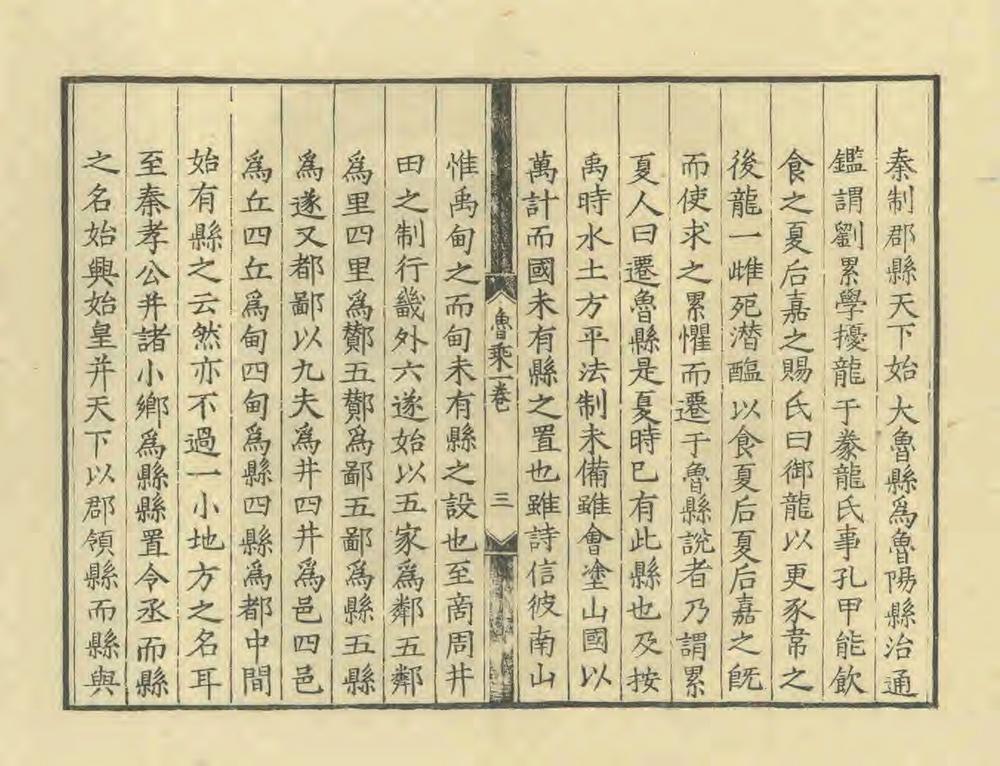 秦制郡縣天下始大魯縣爲魯陽縣治通
鑑謂劉累學擾龍于豢龍氏事孔甲能飲
食之夏后嘉之賜氏曰御龍以更豕韋之
後龍一雌死潛醢以食夏后夏后嘉之旣
而使求之累懼而遷于魯縣說者乃謂累
夏人曰遷魯縣是夏時已有此縣也及按
禹時水土方平法制未備雖會塗山國以
萬計而國未有縣之置也雖詩信彼南山
魯乘一卷
三
惟禹甸之而甸未有縣之設也至商周井
田之制行畿外六遂始以五家爲鄰五鄰
爲里四里爲酇五酇爲鄙五鄙爲縣五縣
爲遂又都鄙以九夫爲井四井爲邑四邑
爲丘四丘爲甸四甸爲縣四縣爲都中間
始有縣之云然亦不過一小地方之名耳
至秦孝公并諸小鄉爲縣縣置令丞而縣
之名始興始皇并天下以郡領縣而縣與